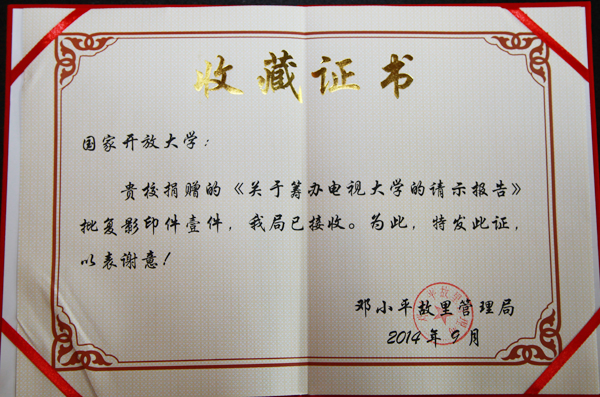 收藏证书
国家开放大学：
贵校捐赠的《关于筹办电视大学的请示报告》
批复影印件壹件，我局已接收。为此，特发此证，
以表谢意！
邓小平故里管理局
2014年9月